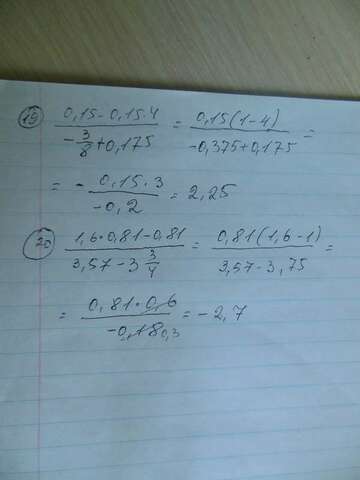 19 (0,15 - 0,15·4)/(-3/8 + 0,175) = 0,15(1-4)/(-0,375+0,175) =
= - 0,15·3/-0,2 = 2,25
20 (1,6·0,81-0,81)/(3,57-3 3/4) = 0,81(1,6-1)/(3,57-3,75) =
= 0,81·0,6/-0,18 0,3 = -2,7